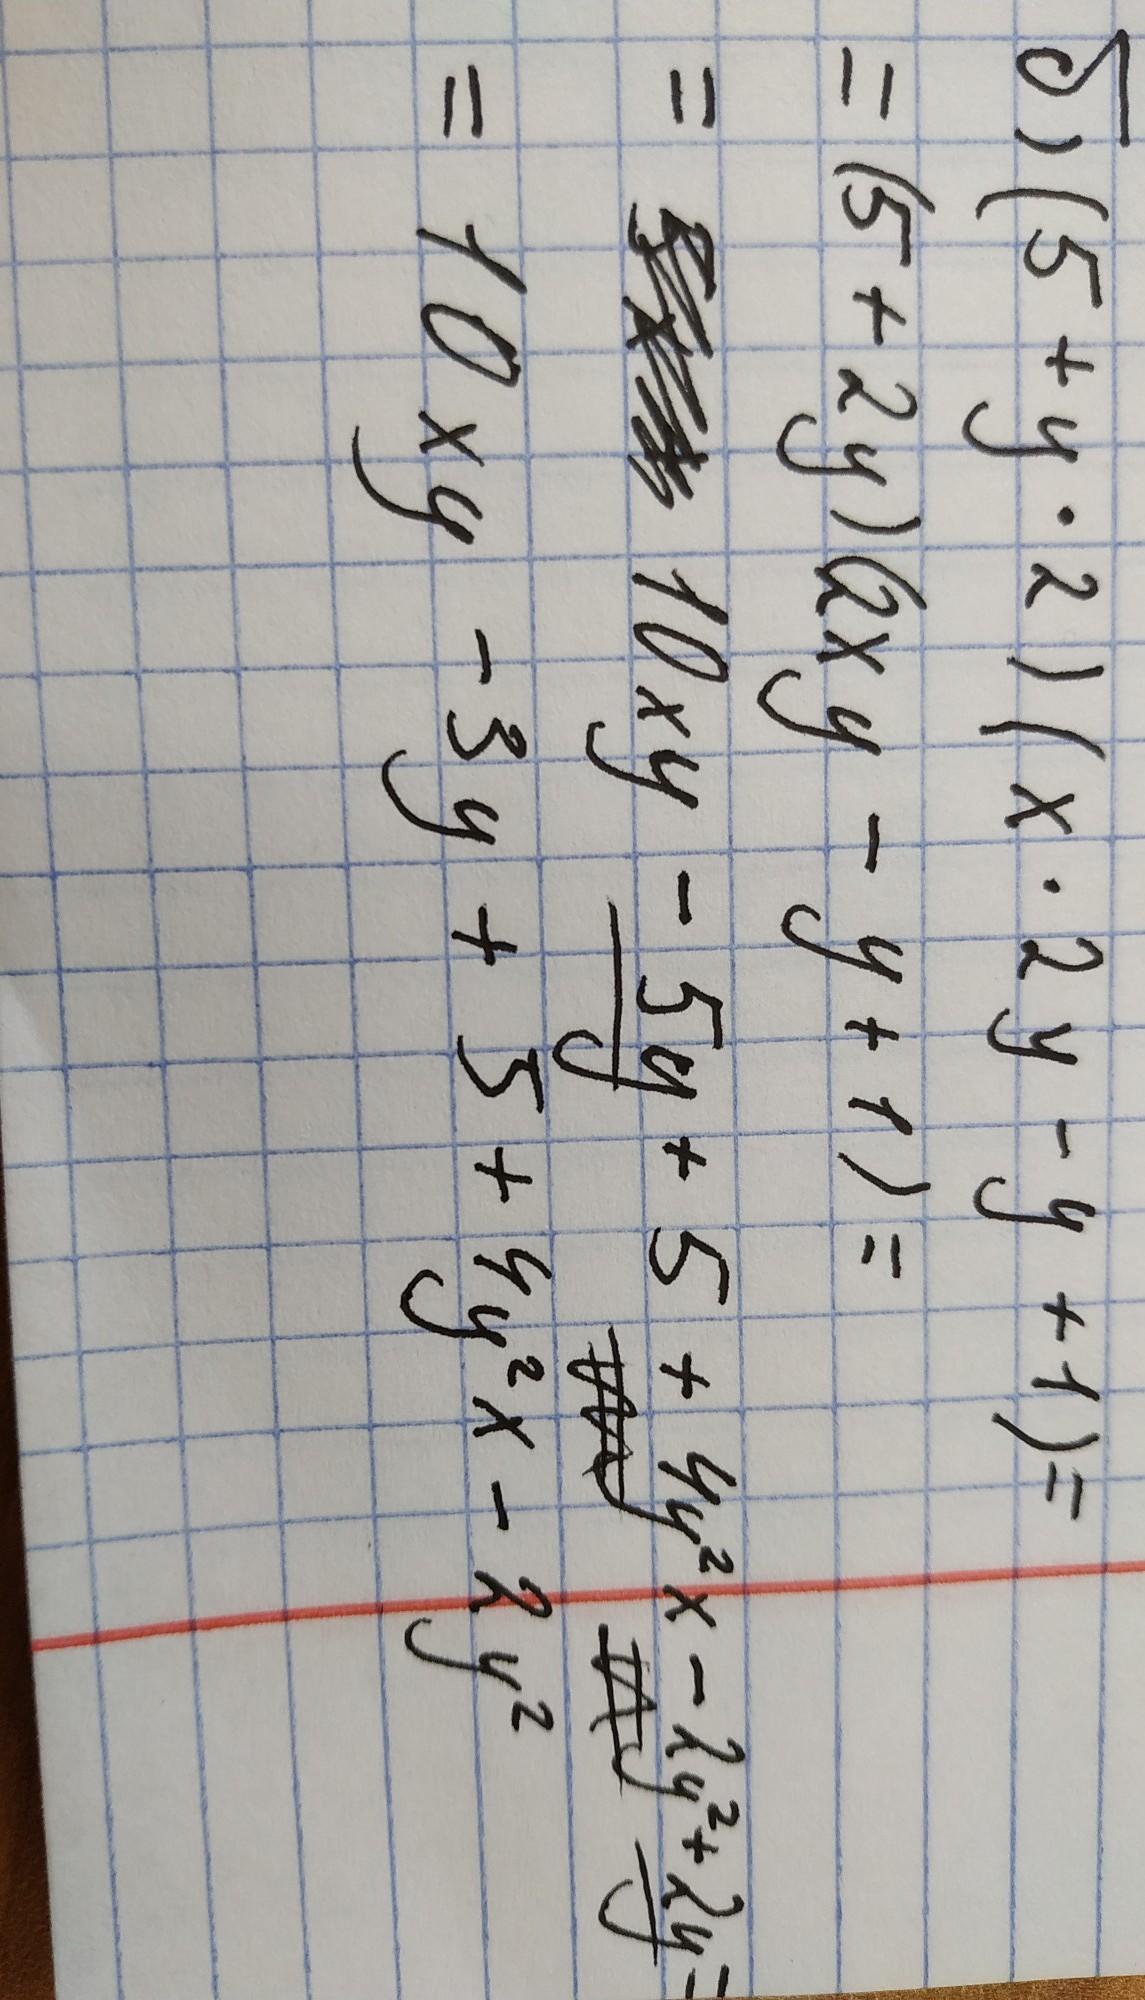 б) (5 + y · 2) (x · 2y - y + 1) =
= (5 + 2y) (2xy - y + 1) =
= 10xy - 5y + 5 + 4y²x - 2y² + 2y =
= 10xy - 3y + 5 + 4y²x - 2y²